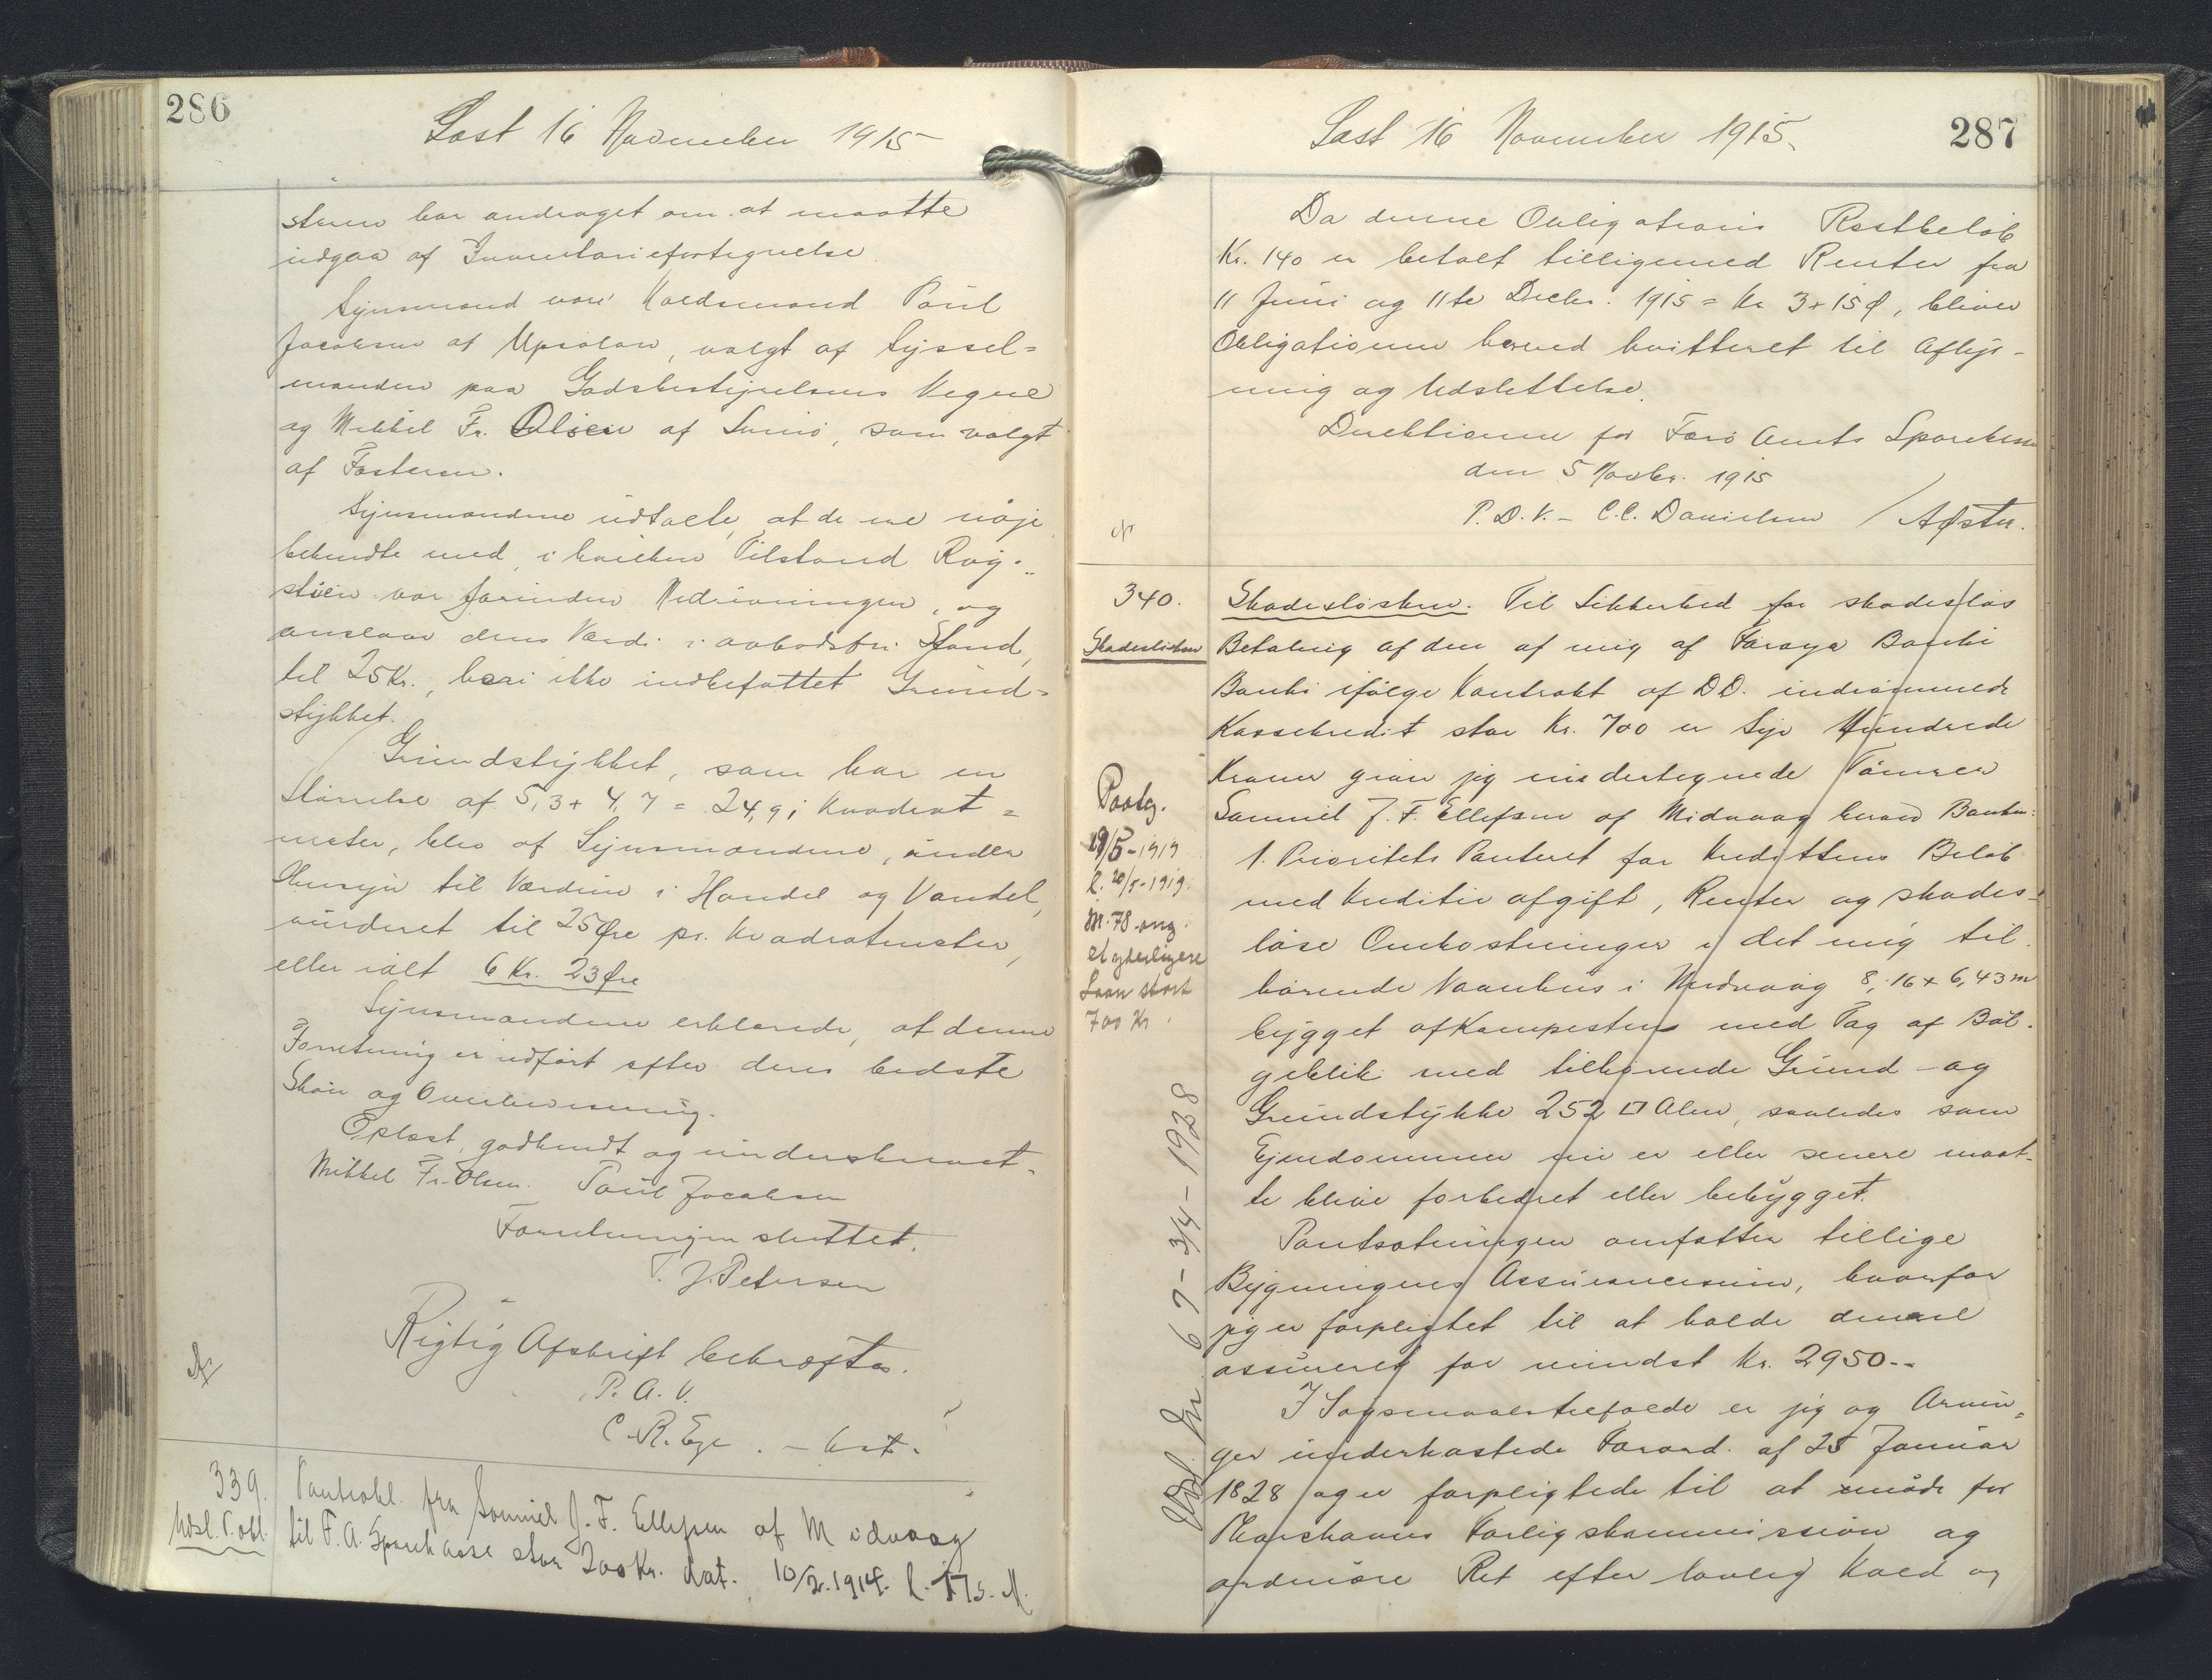 286
Læst 16 November 1915
steren har andraget om at maatte
udgaa af Inventariefortegnelse.
Synsmænd vare Kaldsmand Poul
Jacobsen af Upsølen, valgt af Syssel=
manden paa Godsbestyrelsens Vegne
og Mikkel Fr. Olsen af Sumø, som valgt
af Fæsteren.
Synsmændene udtalte, at de ere nøje
bekendte med, i hvilken Tilstand Røg-
stuen var forinden Nedrivningen, og
ansloge dens Værdi i aabodsfri Stand,
til 25 Kr., heri ikke indbefattet Grund=
stykket.
Grundstykket, som har en
Størrelse af 5,3 + 4,7 = 24,91 Kvadrat=
meter, blev af Synsmændene, under
Hensyn til Værdien i Handel og Vandel,
vurderet til 25 Øre pr. Kvadratmeter,
eller ialt 6 Kr. 23 Øre
Synsmændene erklærede, at denne
Forretning er udført efter deres bedste
Skøn og Overbevisning.
Oplæst, godkendt og underskrevet.
Mikkel Fr. Olsen. Poul Jacobsen
Forretningen sluttet.
J. Petersen
Rigtig Afskrift bekræftes.
P. A. V.
C. R. Ege. - Kst.
339. Pantobl. fra Samuel J. F. Ellefsen af Midvaag
Udsl. P. obl. til F. A. Sparekasse stor 200 Kr. dat. 10/2. 1914. l. 17/5. M.
287
Læst 16 November 1915.
Da denne Obligations Restbeløb
Kr. 140 er betalt tilligemed Renter fra
11 Juni og 11te Decbr. 1915 = Kr 3 + 15 Ø, bliver
Obligationen herved kvitteret til Aflys-
ning og Udslettelse.
Direktionen for Færø Amts Sparekasse
den 5 Novbr. 1915
P. D. V. - C. C. Danielsen / A Øster.
340.
Skadesløsbrev
Skadesløsbrev. Til Sikkerhed for skadesløs
Betaling af den af mig af Føroya Banki
Banki ifølge Kontrakt af D.D. indrømmede
Kassekredit stor Kr. 700 er Syv Hundrede
Kroner giver jeg undertegnede Tømrer
Samuel J. F. Ellefsen af Midvaag herved Banken:
1. Prioritets Panteret for Kredittens Beløb
med Kreditiv afgift, Renter og skades-
løse Omkostninger i det mig til
hørende Vaanhus i Midvaag 8,16 x 6,43 m
bygget af Kampesten med Tag af Bøl-
geblik med tilhørende Grund - og
Grundstykke 252 □ Alen, saaledes som
Ejendommen nu er eller senere maat-
te blive forbedret eller bebygget.
Pantsætningen omfatter tillige
Bygningens Assurancesum, hvorfor
jeg er forpligtet til at holde denne
assureret for mindst Kr. 2950.-
I Søgsmaalstilfælde er jeg og Arvin=
ger underkastede Forord. af 25 Januar
1828 og er forpligtede til at møde for
Thorshavns Forligskommission og
ordinære Ret efter lovlig Kald og
Paateg.
19/5-1919
l. 20/5-1919.
M. 78 ang.
et yderligere
Laan stort
700 Kr.
Udsl. Nr. 67-3/4-1928